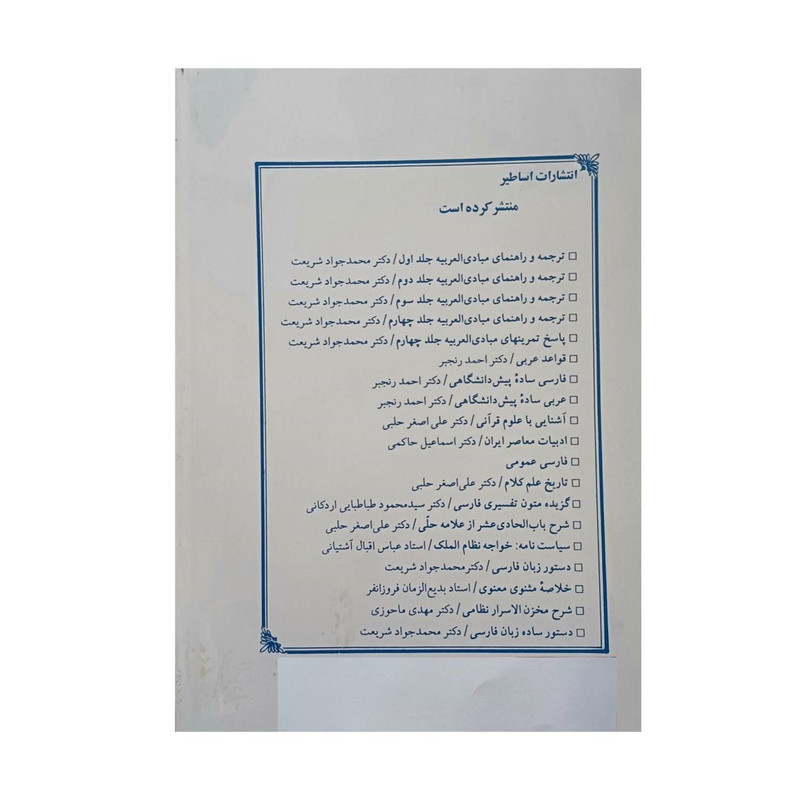 انتشارات اساطیر
منتشر کرده است
□ ترجمه و راهنمای مبادی‌العربیه جلد اول / دکتر محمدجواد شریعت
□ ترجمه و راهنمای مبادی‌العربیه جلد دوم / دکتر محمدجواد شریعت
□ ترجمه و راهنمای مبادی‌العربیه جلد سوم / دکتر محمدجواد شریعت
□ ترجمه و راهنمای مبادی‌العربیه جلد چهارم / دکتر محمدجواد شریعت
□ پاسخ تمرینهای مبادی‌العربیه جلد چهارم / دکتر محمدجواد شریعت
□ قواعد عربی / دکتر احمد رنجبر
□ فارسی سادهٔ پیش‌دانشگاهی / دکتر احمد رنجبر
□ عربی سادهٔ پیش‌دانشگاهی / دکتر احمد رنجبر
□ آشنایی با علوم قرآنی / دکتر علی اصغر حلبی
□ ادبیات معاصر ایران / دکتر اسماعیل حاکمی
□ فارسی عمومی
□ تاریخ علم کلام / دکتر علی‌اصغر حلبی
□ گزیده متون تفسیری فارسی / دکتر سیدمحمود طباطبایی اردکانی
□ شرح باب‌الحادی‌عشر از علامه حلّی / دکتر علی‌اصغر حلبی
□ سیاست نامه: خواجه نظام الملک / استاد عباس اقبال آشتیانی
□ دستور زبان فارسی / دکترمحمدجواد شریعت
□ خلاصهٔ مثنوی معنوی / استاد بدیع‌الزمان فروزانفر
□ شرح مخزن الاسرار نظامی / دکتر مهدی ماحوزی
□ دستور ساده زبان فارسی / دکتر محمدجواد شریعت